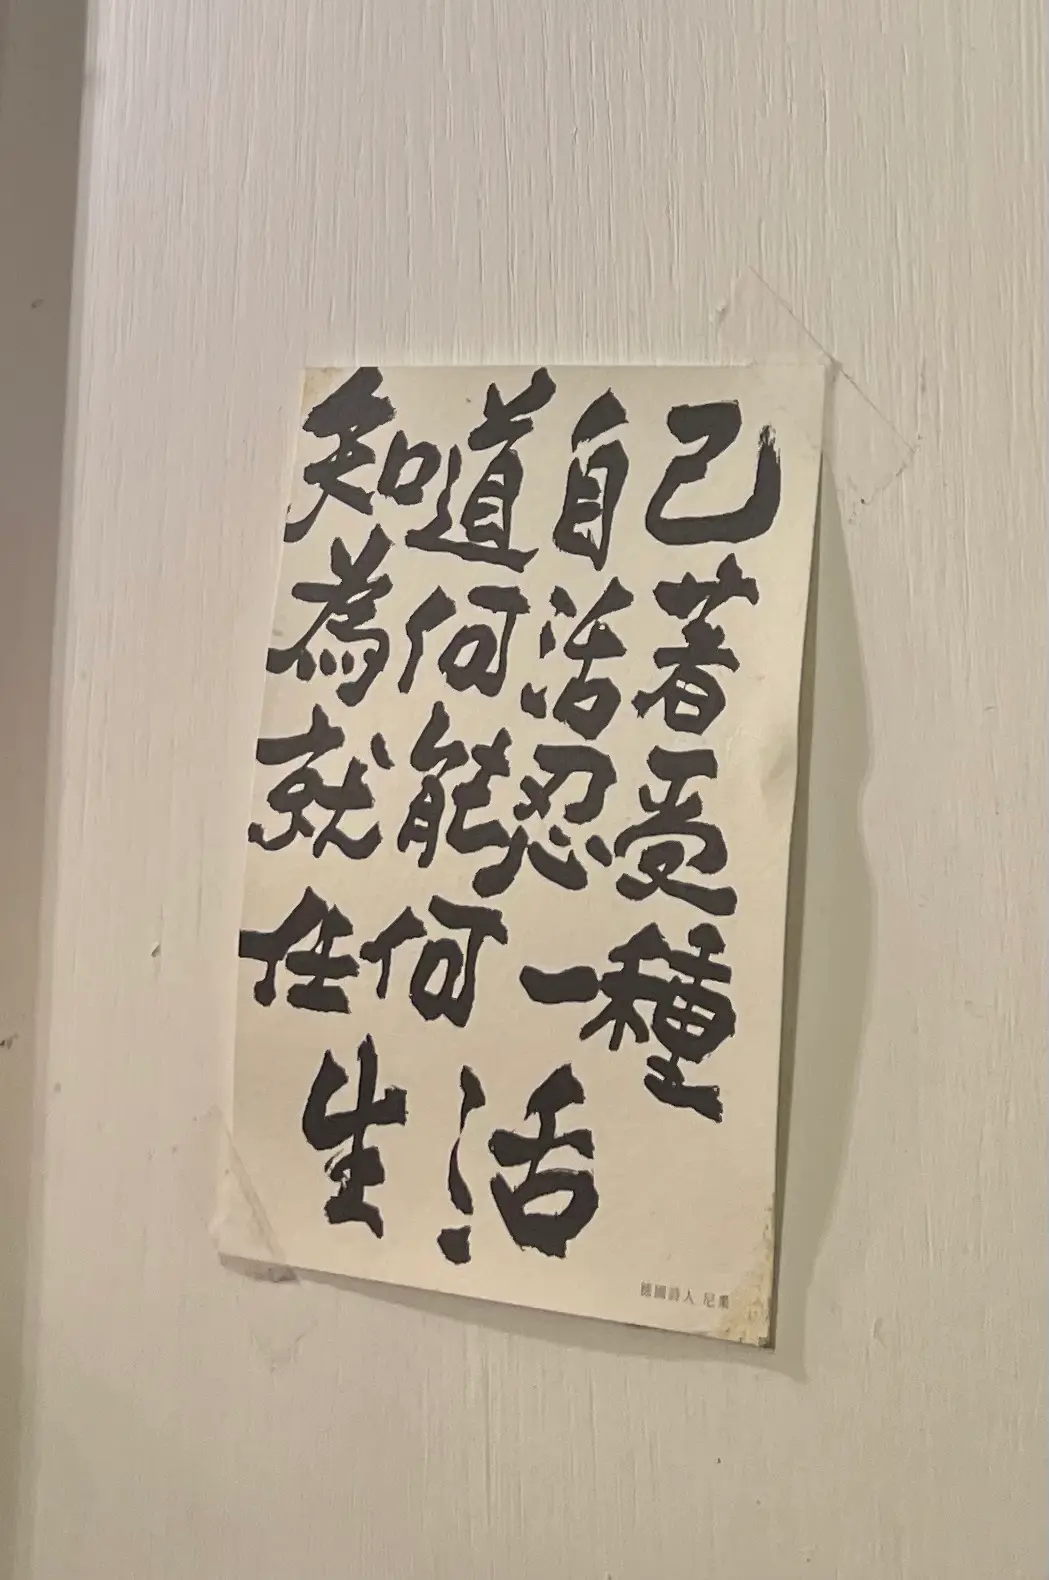 知道自己
為何活著
就能忍受
任何一種
生活
德國詩人 尼采